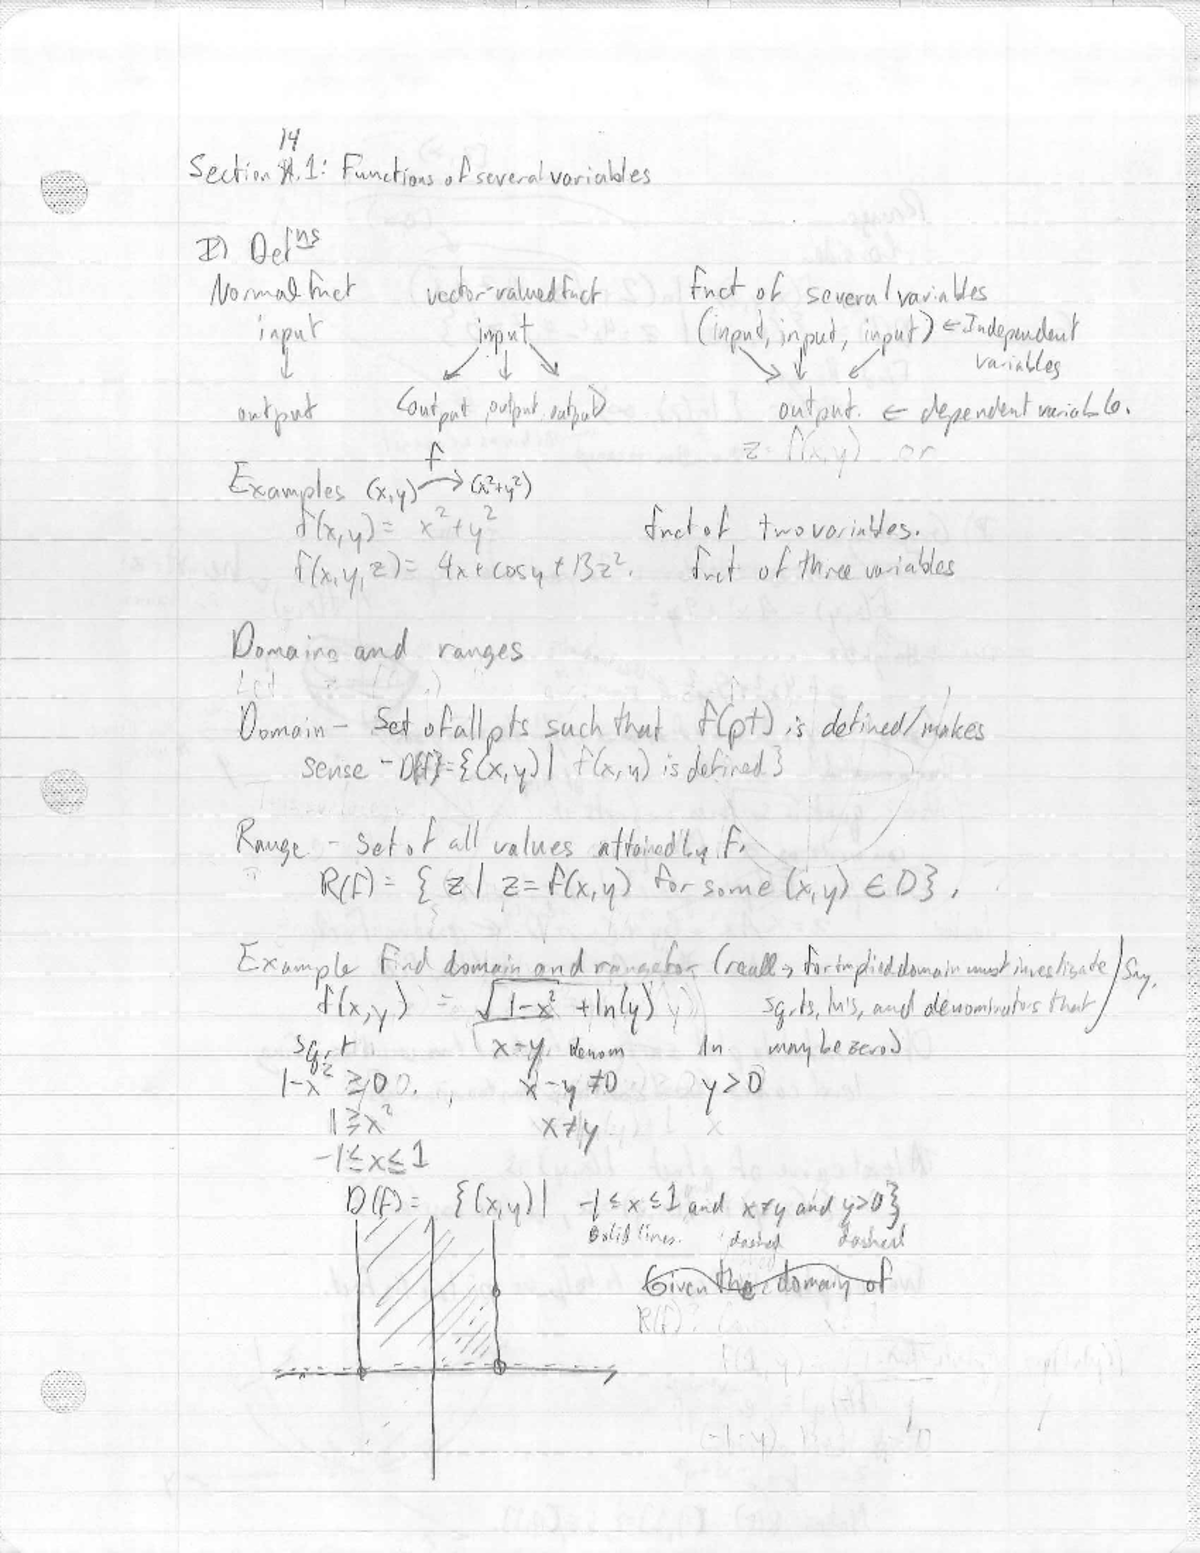 14
Section 14.1: Functions of several variables
I) Defns
Normal fnct vector-valued fnct fnct of several variables
input input (input, input, input) ← Independent
variables
output (output, output, output) output. ← dependent variable.
z = f(x,y) or
f
Examples (x,y) → (x²+y²)
f(x,y) = x²+y² fnct of two variables.
f(x,y,z) = 4x + cosy + 13z². fnct of three variables
Domains and ranges
Domain - Set of all pts such that f(pt) is defined/makes
sense - D(f) = {(x,y) | f(x,y) is defined}
Range - Set of all values attained by f.
R(f) = { z | z = f(x,y) for some (x,y) ∈ D}.
Example Find domain and range for (recall → for implied domain must investigate
f(x,y) = √1-x² + ln(y) sqrts, ln's, and denominators that
x-y may be zero)
sqrt denom ln
1-x² ≥ 0 x-y ≠ 0 y > 0
1 ≥ x² x ≠ y
-1 ≤ x ≤ 1
D(f) = {(x,y) | -1 ≤ x ≤ 1 and x ≠ y and y > 0}
Solid lines. dashed dashed
Given the domain of
R(f)